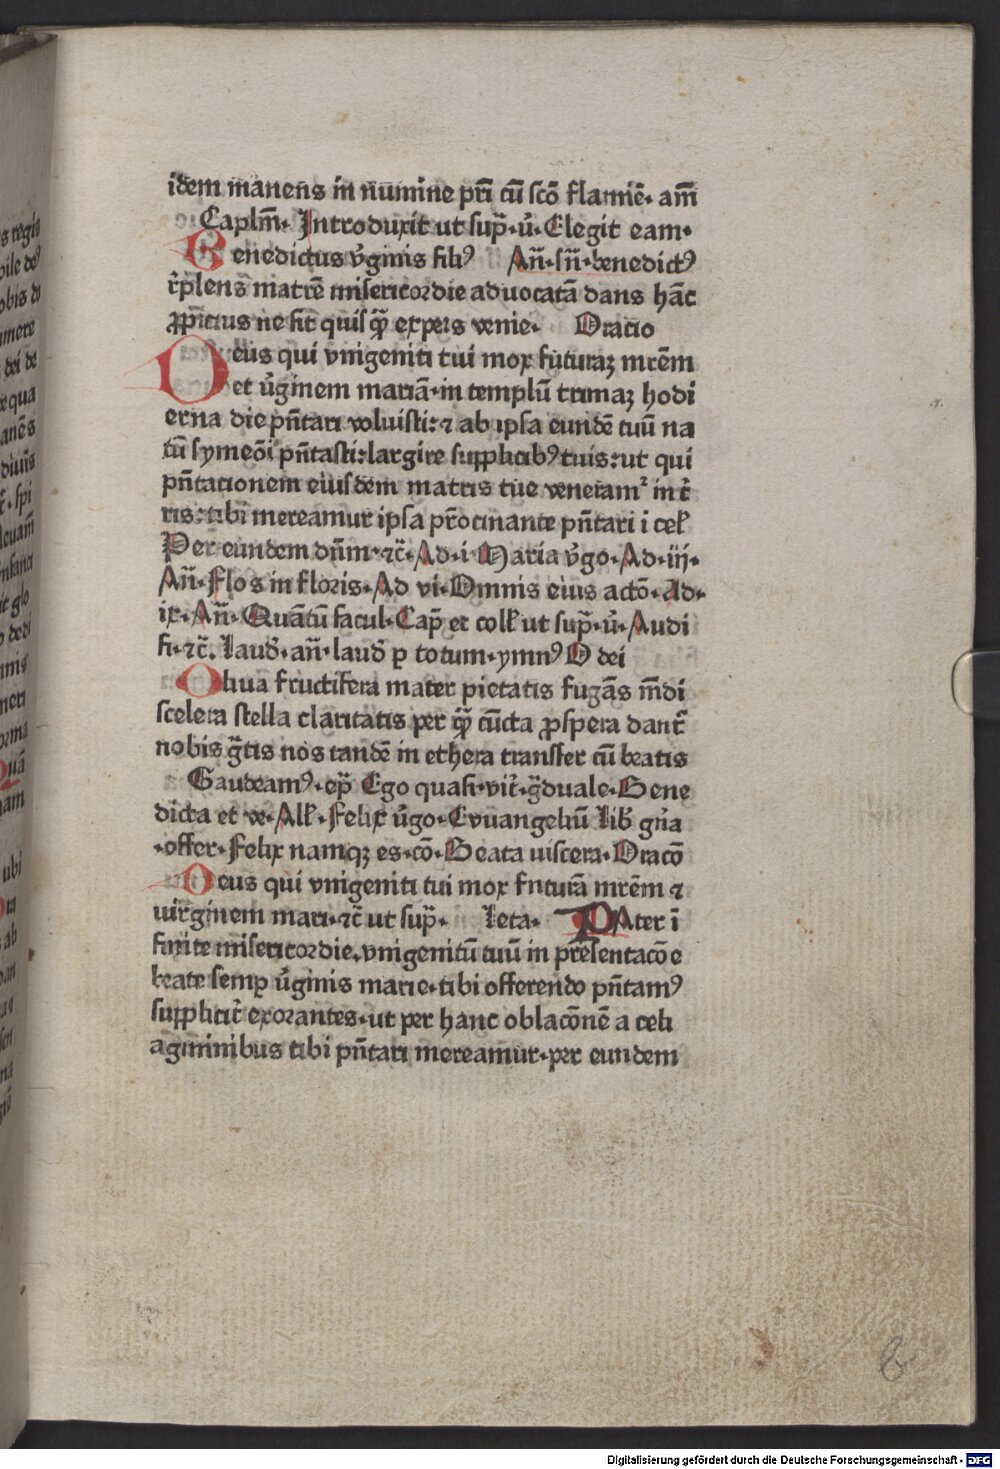 idem manens in numine pr̄i cū scō flamīe· am̄
Caplm̄· Introduxit ut sup̄·v̓· Elegit eam·
Benedictus v̓ginis filiꝰ An̄·sn̄·benedictꝰ
r̓plens matrē misericordie aduocatā dans hāc
ꝓpicius ne sit quis q̄ expers venie· Oracio
Deus qui vnigeniti tui mox futuraꝫ mrēm
et v̓ginem mariā·in templū trimaꝫ hodi
erna die pn̄tari voluisti:⁊ ab ipsa eundē tuū na
tū symeōi pn̄tasti:largire supplicibꝰ tuis:ut qui
pn̄tacionem eiusdem matris tue veneramᷣ in t̓
ris:tibi mereamur ipsa pr̄ocinante pn̄tari i cel̓
Per eundem dn̄m·⁊c̄·Ad·i·Maria v̓go·Ad·iij·
An̄·Flos in floris·Ad vi·Omnis eius actō·Ad·
ix·An̄·Quātū facul·Cap̄ et coll̓ ut sup̄·v̓·Audi
fi·⁊c̄. laud̓·an̄·laud̓ p totum·ymnꝰ O dei
Oliua fructifera mater pietatis fugās m̄di
scelera stella claritatis per q̄ cūcta ꝓspera dant̄
nobis ḡtis nos tandē in ethera transfer cū beatis
Gaudeamꝰ·ep̄ Ego quasi·vit̓·g̓duale·Bene
dicta et ve·All̓·Felix v̓go·Evuangeliū lib̓ gn̓a
·offer·Felix namqꝫ es·cō·Beata uiscera·Oracō
Deus qui vnigeniti tui mox futurā mrēm ⁊
virginem mari·⁊c̄ ut sup̄· Ieta· PAter ī
finite misericordie.vnigenitū tuū in presentacōe
beate semp v̓ginis marie·tibi offerendo pn̄tamꝰ
supplicit̓ exorantes·ut per hanc oblacōnē a celi
agminibus tibi pn̄tari mereamur·per eundem
Digitalisierung gefördert durch die Deutsche Forschungsgemeinschaft - DFG